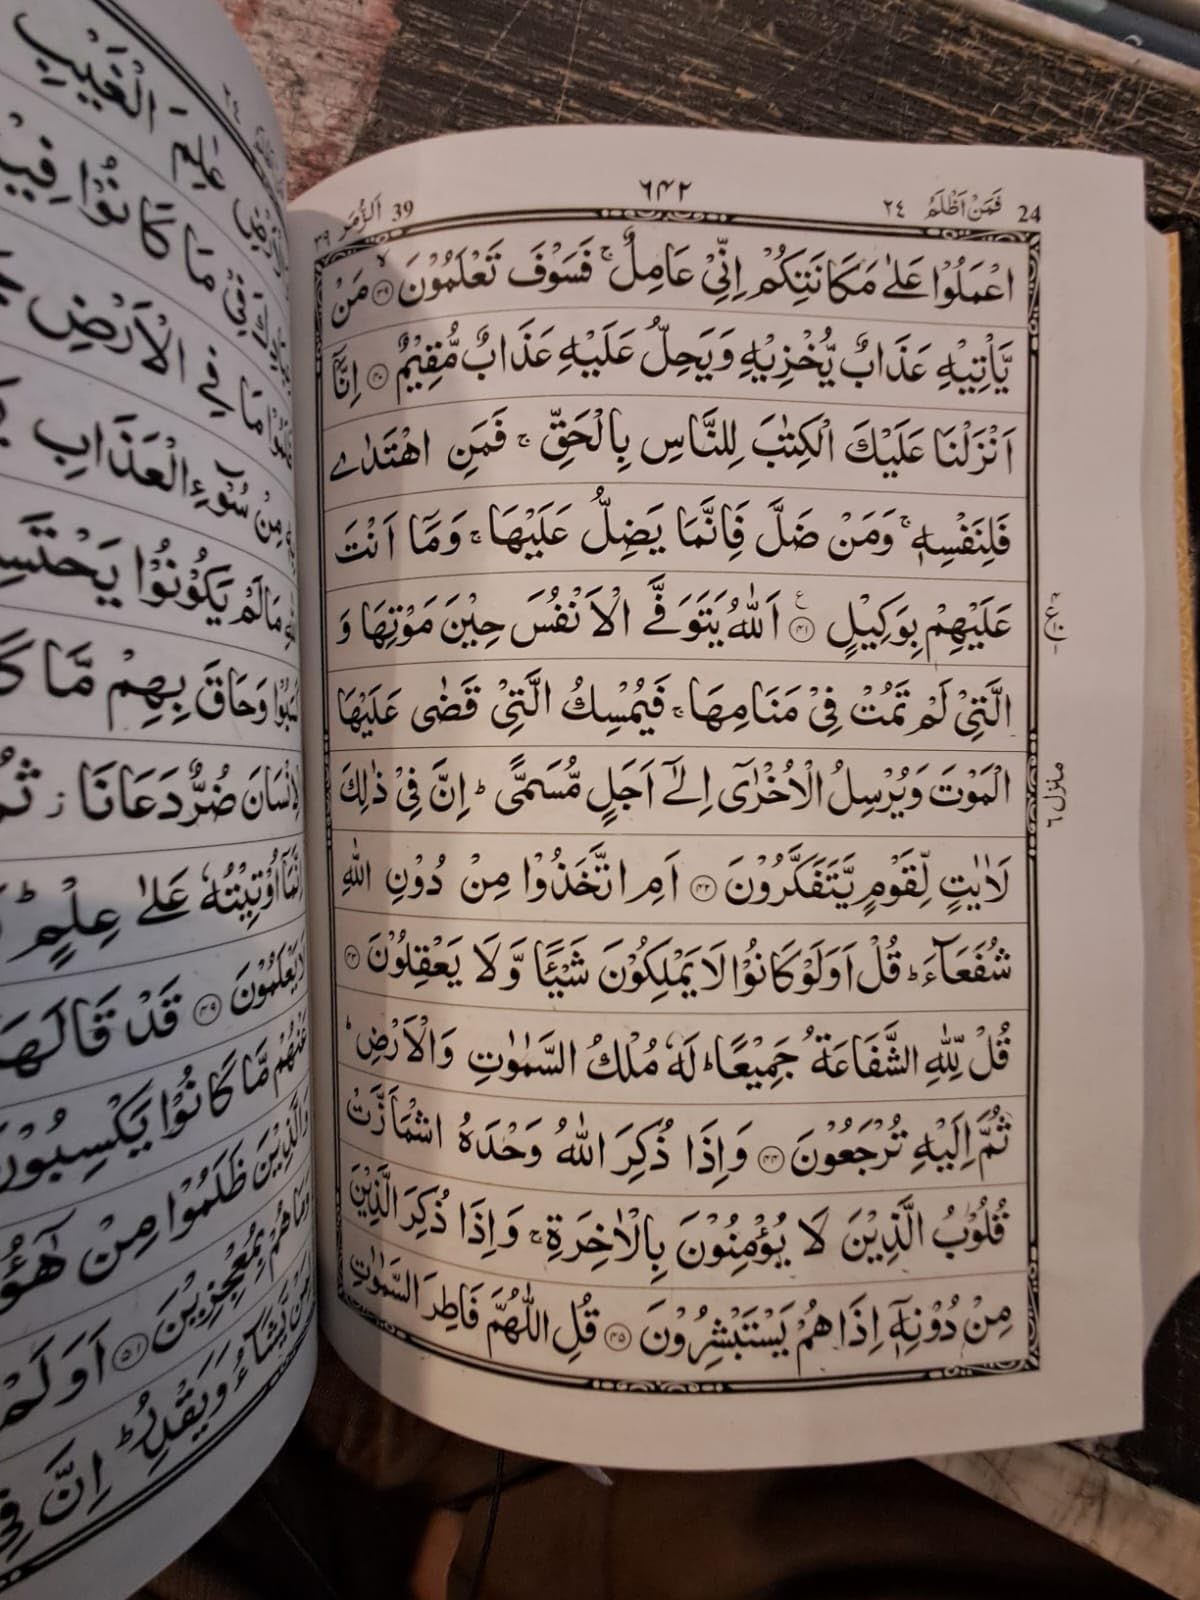 24 فَمَنْ اَظْلَمُ ٢٤
٦٤٢
اَلزُّمَر ٣٩ 39
اعْمَلُوْا عَلٰى مَكَانَتِكُمْ اِنِّیْ عَامِلٌ ۚ فَسَوْفَ تَعْلَمُوْنَ ۙ‏﴿۳۹﴾ مَنْ
يَّاْتِيْهِ عَذَابٌ يُّخْزِيْهِ وَيَحِلُّ عَلَيْهِ عَذَابٌ مُّقِيْمٌ ﴿۴۰﴾ اِنَّاۤ
اَنْزَلْنَا عَلَيْكَ الْكِتٰبَ لِلنَّاسِ بِالْحَقِّ ۚ فَمَنِ اهْتَدٰى
فَلِنَفْسِهٖ ۚ وَمَنْ ضَلَّ فَاِنَّمَا يَضِلُّ عَلَيْهَا ۚ وَمَاۤ اَنْتَ
عَلَيْهِمْ بِوَكِيْلٍ ﴿۴۱﴾ اَللّٰهُ يَتَوَفَّى الْاَنْفُسَ حِيْنَ مَوْتِهَا وَ
الَّتِیْ لَمْ تَمُتْ فِیْ مَنَامِهَا ۚ فَيُمْسِكُ الَّتِیْ قَضٰى عَلَيْهَا
الْمَوْتَ وَيُرْسِلُ الْاُخْرٰٓى اِلٰٓى اَجَلٍ مُّسَمًّى ؕ اِنَّ فِیْ ذٰلِكَ
لَاٰيٰتٍ لِّقَوْمٍ يَّتَفَكَّرُوْنَ ﴿۴۲﴾ اَمِ اتَّخَذُوْا مِنْ دُوْنِ اللّٰهِ
شُفَعَآءَ ؕ قُلْ اَوَلَوْ كَانُوْا لَا يَمْلِكُوْنَ شَيْـًٔا وَّلَا يَعْقِلُوْنَ ﴿۴۳﴾
قُلْ لِّلّٰهِ الشَّفَاعَةُ جَمِيْعًا ؕ لَهٗ مُلْكُ السَّمٰوٰتِ وَالْاَرْضِ ؕ
ثُمَّ اِلَيْهِ تُرْجَعُوْنَ ﴿۴۴﴾ وَاِذَا ذُكِرَ اللّٰهُ وَحْدَهُ اشْمَاَزَّتْ
قُلُوْبُ الَّذِيْنَ لَا يُؤْمِنُوْنَ بِالْاٰخِرَةِ ۚ وَاِذَا ذُكِرَ الَّذِيْنَ
مِنْ دُوْنِهٖۤ اِذَا هُمْ يَسْتَبْشِرُوْنَ ﴿۴۵﴾ قُلِ اللّٰهُمَّ فَاطِرَ السَّمٰوٰتِ
منزل ٦
عٰلِمَ الْغَيْبِ
مَا كَانُوْا
مَا فِی الْاَرْضِ
مِنْ سُوْٓءِ الْعَذَابِ
مَا لَمْ يَكُوْنُوْا
وَحَاقَ بِهِمْ مَّا
ضُرٌّ دَعَانَا ز
اُوْتِيْتُهٗ عَلٰى عِلْمٍ ؕ
يَعْلَمُوْنَ ﴿۴۹﴾ قَدْ قَالَهَا
عَنْهُمْ مَّا كَانُوْا يَكْسِبُوْنَ
وَالَّذِيْنَ ظَلَمُوْا مِنْ
هُمْ بِمُعْجِزِيْنَ ﴿۵۱﴾ اَوَلَمْ
يَّشَآءُ وَيَقْدِرُ ؕ اِنَّ فِیْ